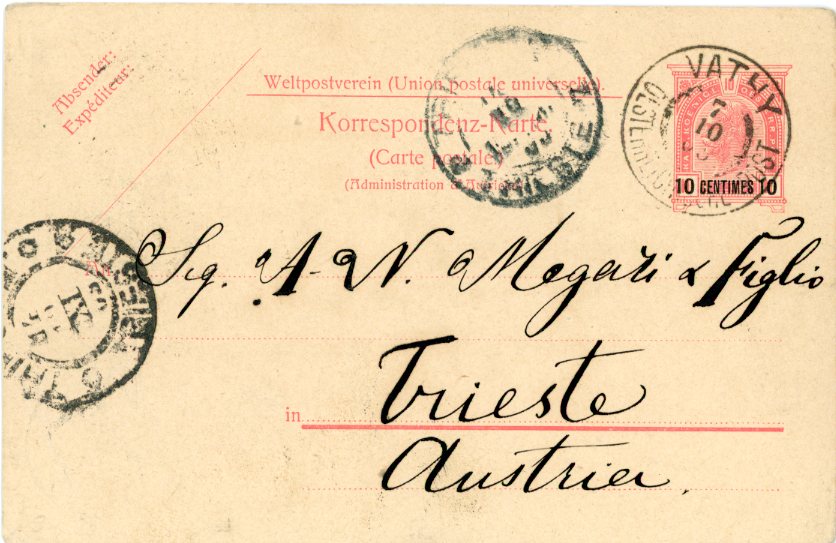 Absender:
Expéditeur:
Weltpostverein (Union postale universelle)
Korrespondenz-Karte
(Carte postale)
(Administration d'Autriche)
VATHY
7
10
10 CENTIMES 10
Sig. A. N. Megari & Figlio
in Trieste
Austria.